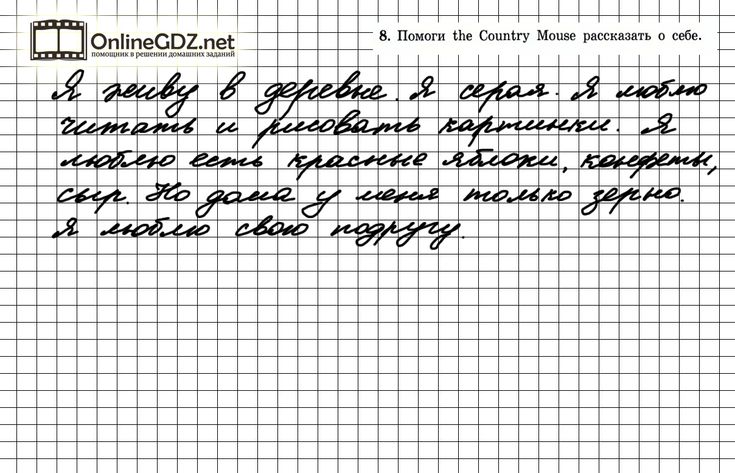 OnlineGDZ.net
помощник в решении домашних заданий
8. Помоги the Country Mouse рассказать о себе.
Я живу в деревне. Я серая. Я люблю
читать и рисовать картинки. Я
люблю есть красные яблоки, конфеты,
сыр. Но дома у меня только зерно.
Я люблю свою подругу.